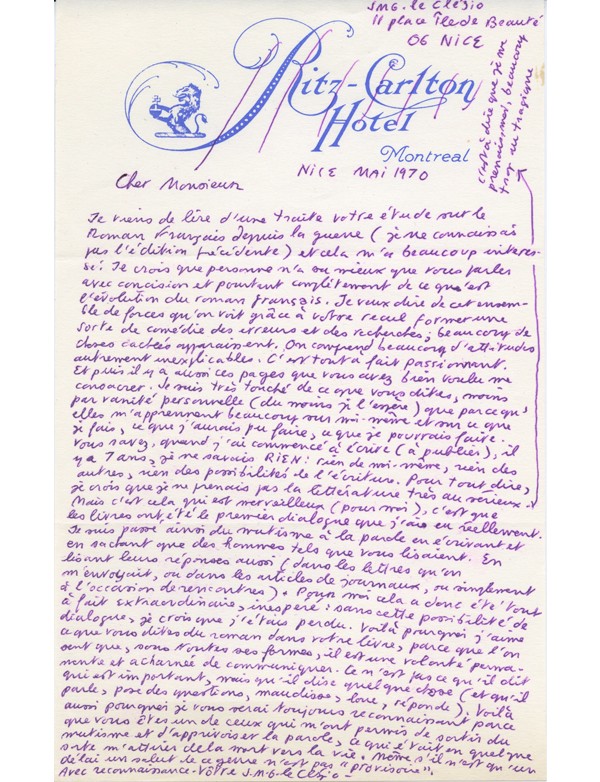 J.M.G. le Clézio
11 place Île de Beauté
06 NICE
Ritz-Carlton
Hotel
Montreal
NICE MAI 1970
c'est à dire que je me
prenais, moi, beaucoup
trop au tragique
Cher Monsieur
Je viens de lire d'une traite votre étude sur le
Roman Français depuis la guerre (je ne connaissais
pas l'édition précédente) et cela m'a beaucoup intéres-
sé. Je crois que personne n'a su mieux que vous parler
avec concision et pourtant complètement de ce qu'est
l'évolution du roman français. Je veux dire de cet ensem-
ble de forces qu'on voit grâce à votre recul former une
sorte de comédie des erreurs et des recherches; beaucoup de
choses cachées apparaissent. On comprend beaucoup d'attitudes
autrement inexplicables. C'est tout à fait passionnant.
Et puis il y a aussi ces pages que vous avez bien voulu me
consacrer. Je suis très touché de ce que vous dites, moins
par vanité personnelle (du moins je l'espère) que parce qu'
elles m'apprennent beaucoup sur moi-même et sur ce que
je fais, ce que j'aurais pu faire, ce que je pourrais faire.
Vous savez, quand j'ai commencé à écrire (à publier), il
y a 7 ans, je ne savais RIEN: rien de moi-même, rien des
autres, rien des possibilités de l'écriture. Pour tout dire,
je crois que je ne prenais pas la littérature très au sérieux.
Mais c'est cela qui est merveilleux (pour moi), c'est que
les livres ont été le premier dialogue que j'aie eu réellement.
Je suis passé ainsi du mutisme à la parole en écrivant et
en sachant que des hommes tels que vous lisaient. En
lisant leurs réponses aussi (dans les lettres qu'on
m'envoyait, ou dans les articles de journaux, ou simplement
à l'occasion de rencontres). Pour moi cela a donc été tout
à fait extraordinaire, inespéré: sans cette possibilité de
dialogue, je crois que j'étais perdu. Voilà pourquoi j'aime
ce que vous dites du roman dans votre livre, parce que l'on
sent que, sous toutes ses formes, il est une volonté perma-
nente et acharnée de communiquer. Ce n'est pas ce qu'il dit
qui est important, mais qu'il dise quelque chose (et qu'il
parle, pose des questions, maudisse, loue, réponde). Voilà
aussi pourquoi je vous serai toujours reconnaissant parce
que vous êtes un de ceux qui m'ont permis de sortir du
mutisme et d'apprivoiser la parole, ce qui était en quelque
sorte m'attirer de la mort vers la vie. Même s'il n'est qu'un
délai un salut de ce genre n'est pas "provisoire".
Avec reconnaissance - Vôtre J.M.G. le Clézio -